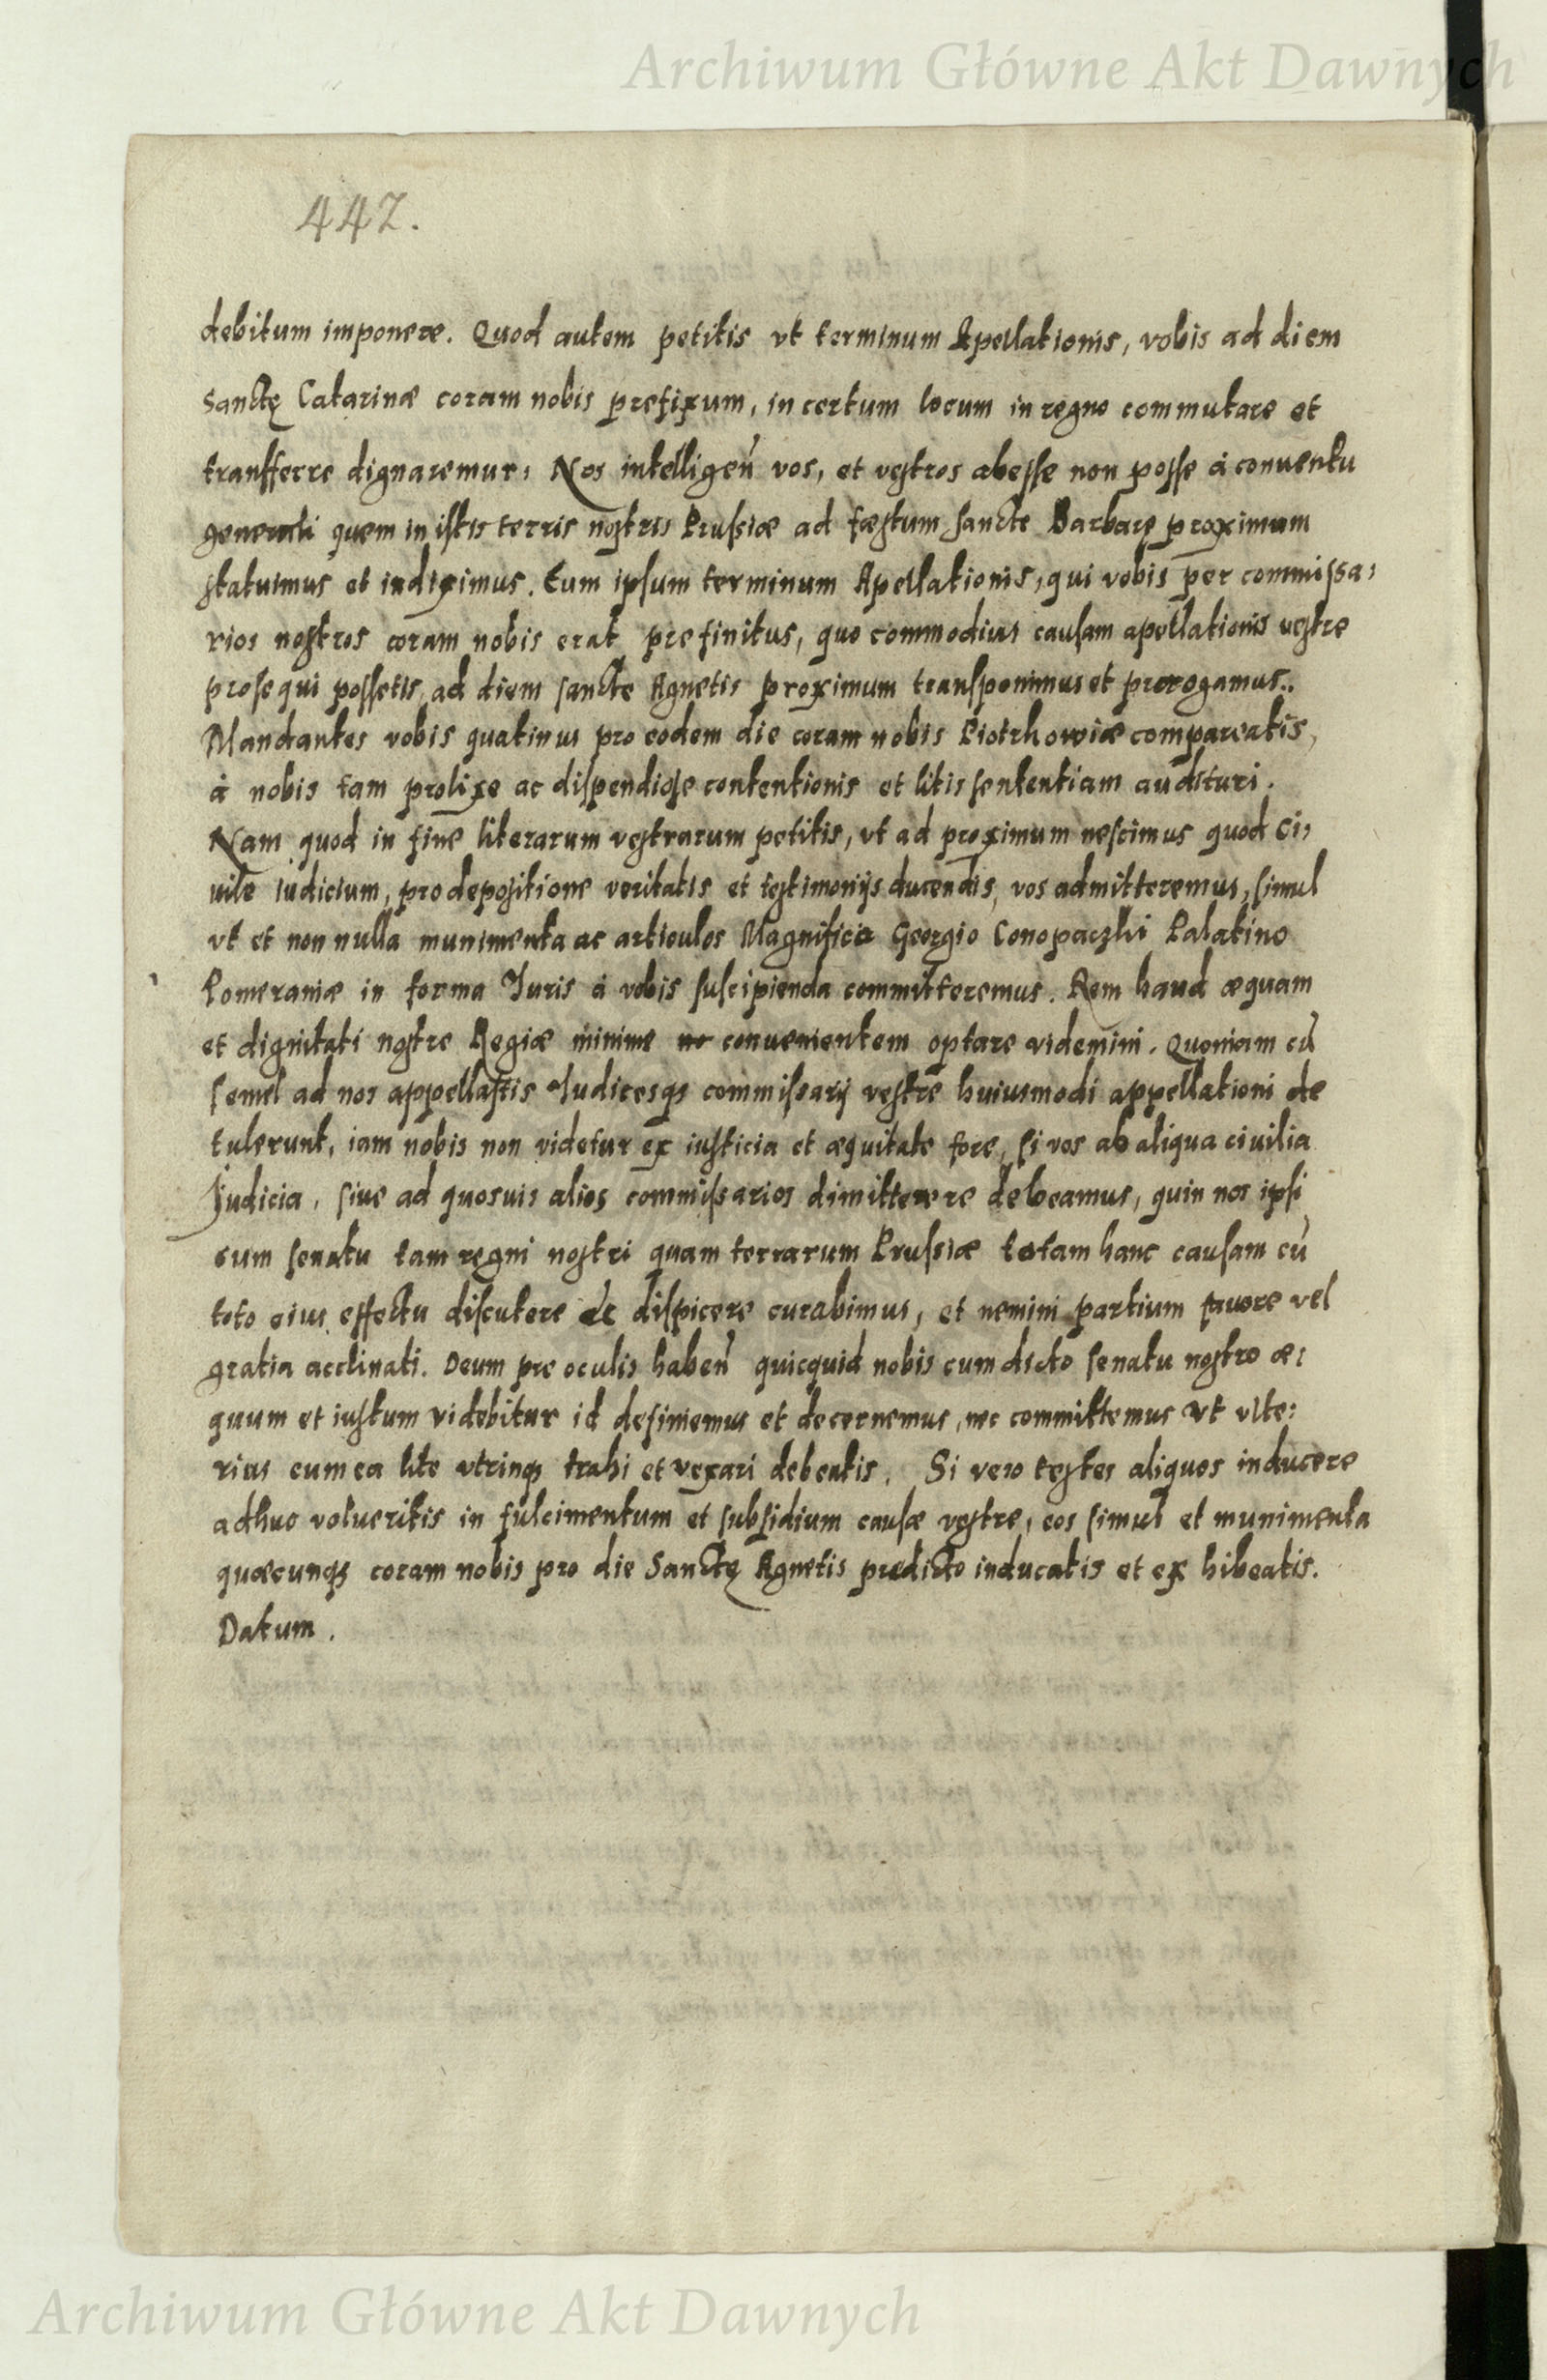 Archiwum Główne Akt Dawnych
442.
debitum imponere. Quod autem petitis vt terminum Apellationis, vobis ad diem
Sanctę Catarinæ coram nobis prefixum, in certum locum in regno commutare et
transferre dignaremur, Nos intelligen̄ vos, et vestros abesse non posse à conuentu
generali quem in istis terris nostris Prussiæ ad fæstum sancte Barbarę proximum
statuimus et indiximus. Eum ipsum terminum Apellationis, qui vobis per commissa,
rios nostros coram nobis erat prefinitus, quo commodius causam apellationis vestre
prosequi possetis, ad diem sancte Agnetis proximum transponimus et prorogamus..
Mandantes vobis quatinus pro eodem die coram nobis Piotrhowiæ compareatis,
à nobis tam prolixe ac dispendiose contentionis et litis sententiam audituri.
Nam quod in fine literarum vestrarum petitis, vt ad proximum nescimus quod Ci,
uile iudicium, pro depositione veritatis et testimonijs ducendis, vos admitteremus, simul
vt et non nulla munimenta ac articulos Magnifico Georgio Conopaczhi Palatino
Pomeraniæ in forma Juris à vobis suscipienda committeremus. Rem haud æquam
et dignitati nostre Regiæ minime conuenientem optare videmini. Quoniam cū
semel ad nos appellastis Iudicesq; commissarij vestre huiusmodi appellationi de
tulerunt, iam nobis non videtur ex iusticia et æquitate fore, si vos ab aliqua ciuilia
Judicia, siue ad quosuis alios commissarios dimitterere debeamus, quin nos ipsi
cum senatu tam regni nostri quam terrarum Prussiæ totam hanc causam cū
toto eius effectu discutere et dispicere curabimus, et nemini partium fauore vel
gratia acclinati. Deum pre oculis haben̄ quicquid nobis cum dicto senatu nostro æ:
quum et iustum videbitur id definiemus et decernemus, nec committemus vt vlte:
rius cum ea lite vtrinq; trahi et vexari debeatis. Si vero testes aliquos inducere
adhuc volueritis in fulcimentum et subsidium causæ vestre, eos simul et munimenta
quæcunq; coram nobis pro die Sanctę Agnetis predicto inducatis et ex hibeatis.
Datum.
Archiwum Główne Akt Dawnych